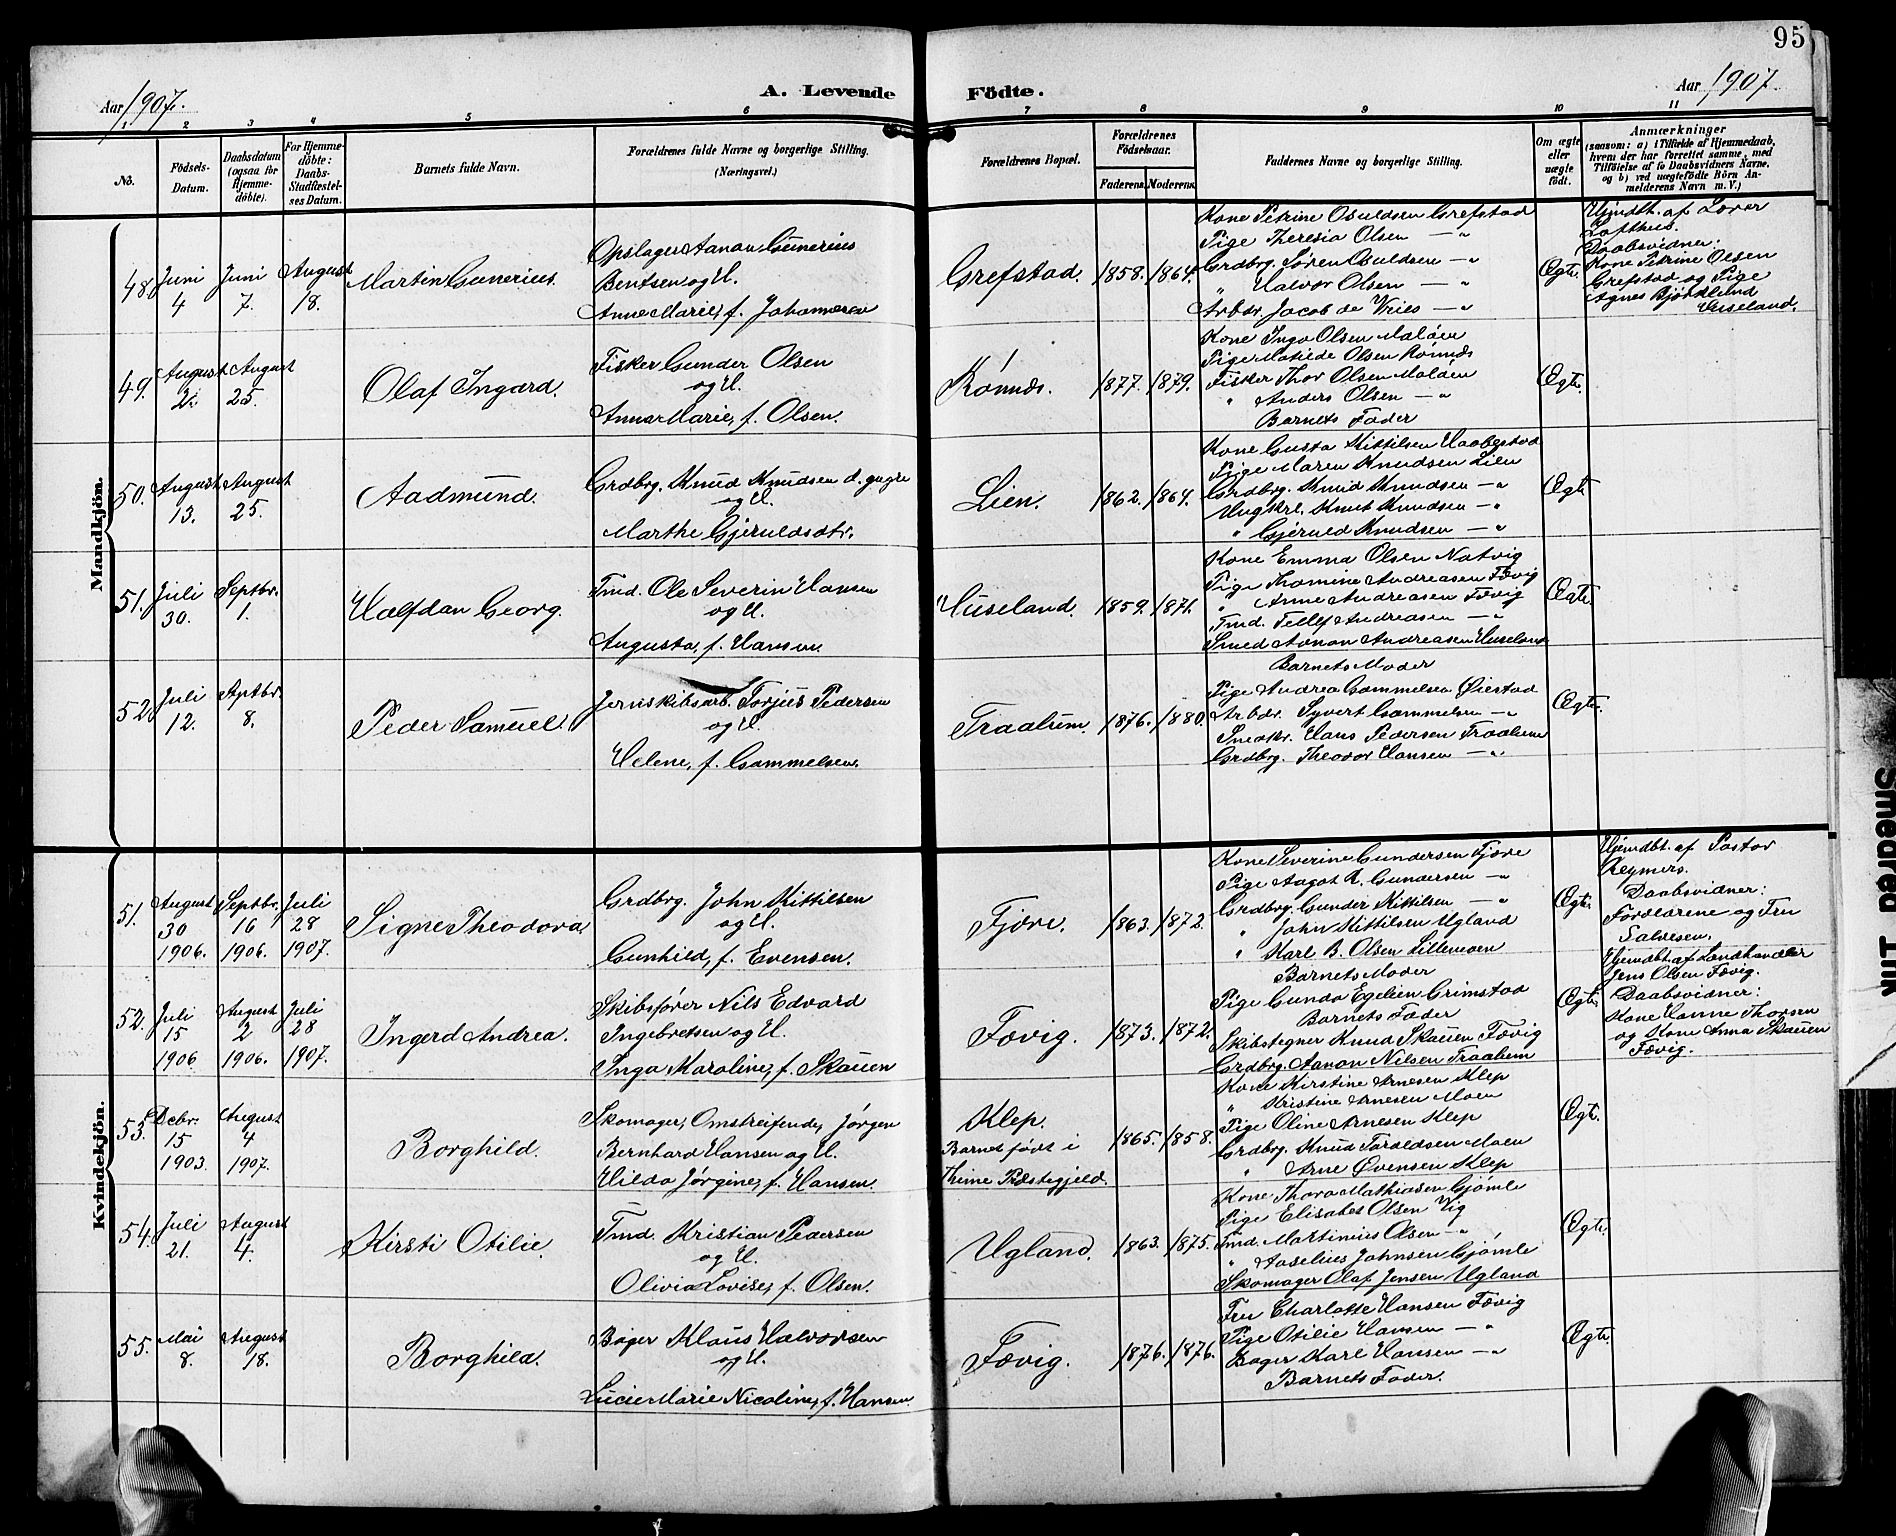 95
Aar 1907.
A. Levende
Födte.
Aar 1907.
1 2 3 4 5 6 7 8 9 10 11
No.
Födsels-
Datum.
Daabsdatum
(ogsaa for
Hjemme-
döbte).
For Hjemme-
döbte:
Daabs-
Stadfæstel-
ses Datum.
Barnets fulde Navn.
Forældrenes fulde Navne og borgerlige Stilling.
(Næringsvei.)
Forældrenes Bopæl.
Forældrenes
Födselsaar.
Faderens. Moderens.
Faddernes Navne og borgerlige Stilling.
Om ægte
eller
uægte
födt.
Anmærkninger
(saasom: a) i Tilfælde af Hjemmedaab,
hvem der har forrettet samme, med
Tilföielse af to Daabsvidners Navne,
og b) ved uægtefödte Börn An-
melderens Navn m. V.)
Mandkjön.
48. Juni 4 Juni 7. August 18.
Martin Gunerius.
Opslager Aanon Gunerius
Bentsen og H.
Anne Marie, f. Johannesen
Grefstad. 1858. 1864.
Kone Petrine Osuldsen Grefstad
Pige Theresia Olsen — "
Grdbrg. Søren Osuldsen — "
" Halvor Olsen — "
Arbdr. Jacob de Vries — "
Ægte.
Hjemdbt. af Lærer
Lofthus.
Daabsvidner:
Kone Petrine Olsen
Grefstad og Pige
Agnes Bjørklund
Huseland.
49. August 2. August 25.
Olaf Ingard.
Fisker Gunder Olsen
og H.
Anna Marie, f. Olsen.
Rønnes. 1877. 1879.
Kone Inga Olsen Maløen
Pige Matilde Olsen Rønnes
Fisker Thor Olsen Maløen
" Anders Olsen — "
Barnets Fader
Ægte.
50. August 13. August 25.
Aadmund.
Grdbrg. Knud Knudsen d. yngre
og H.
Marthe Gjeruldsdtr.
Lien. 1862. 1864.
Kone Gusta Kittilsen Haabestad
Pige Maren Knudsen Lien
Grdbrg. Knud Knudsen — "
Ungkrl. Knut Knudsen — "
" Gjeruld Knudsen — "
Ægte
51. Juli 30. Septbr. 1.
Halfdan Georg.
Tmd. Ole Severin Hansen
og H.
Augusta, f. Hansen.
Huseland. 1859. 1871.
Kone Emma Olsen Natvig
Pige Thomine Andreasen Fævig
" Anne Andreasen Fævig
Tmd. Tellef Andreasen — "
Smed Aanon Andreasen Huseland
Barnets Moder
Ægte.
52. Juli 12. Septbr. 8.
Peder Samuel.
Jernskibsarb. Torjus Pedersen
og H.
Helene, f. Gammelsen.
Traalum. 1876. 1880.
Pige Andrea Gammelsen Øiestad
Arbdr. Syvert Gammelsen — "
Snedkr. Hans Pedersen Traalum
Grdbrg. Theodor Hansen — "
Ægte.
Kvindekjön.
51. August 30 1906. Septbr. 16 1906. Juli 28 1907.
Signe Theodora.
Grdbrg. John Kittilsen
og H.
Gunhild, f. Evensen.
Fjære. 1863. 1872.
Kone Severine Gundersen Fjære
Pige Aagot R. Gundersen — "
Grdbrg. Gunder Kittilsen — "
" John Kittilsen Ugland
" Karl B. Olsen Lillemoen
Barnets Moder
Ægte.
Hjemdbt. af Pastor
Reymers.
Daabsvidner:
Forældrene og Fru
Salvesen.
52. Juli 15 1906 August 2 1906. Juli 28 1907.
Ingerd Andrea.
Skibsfører Nils Edvard
Ingebretsen og H.
Inga Karoline, f. Skauen
Fævig. 1873. 1872.
Pige Gunda Egelien Grimstad
Barnets Fader
Skibstegner Knud Skauen Fævig
Grdbrg. Aanon Nilsen Traalum
Ægte.
Hjemdbt. af Landhandler
Jens Olsen Fævig.
Daabsvidner:
Kone Hanne Thorsen
og Kone Anna Skauen
Fævig.
53. Decbr. 15 1903. August 4 1907.
Borghild.
Skomager, Omstreifende, Jørgen
Bernhard Hansen og H.
Hilda Jørgine, f. Hansen.
Klep.
Barnet født i
Thime Præstegjeld.
1865. 1858.
Kone Kirstine Arnesen Klep
" Kristine Arnesen Moen
Pige Oline Arnesen Klep
Grdbrg. Knud Taraldsen Moen
" Arne Øvensen Klep
Ægte.
54. Juli 21. August 4.
Kirsti Otilie.
Tmd. Kristian Pedersen
og H.
Olivia Lovise, f. Olsen.
Ugland. 1863. 1875.
Kone Thora Mathiasen Gjømle
Pige Elisabet Olsen Vig
Tmd. Martinius Olsen — "
" Aaselius Johnsen Gjømle
Skomager Olaf Jensen Ugland
Ægte.
55. Mai 8. August 18.
Borghild.
Bager Klaus Halvorsen
og H.
Lucie Marie Nicoline, f. Hansen
Fævig. 1876. 1876.
Fru Charlotte Hansen Fævig
Pige Otilie Hansen — "
Bager Karl Hansen — "
Barnets Fader.
Ægte.